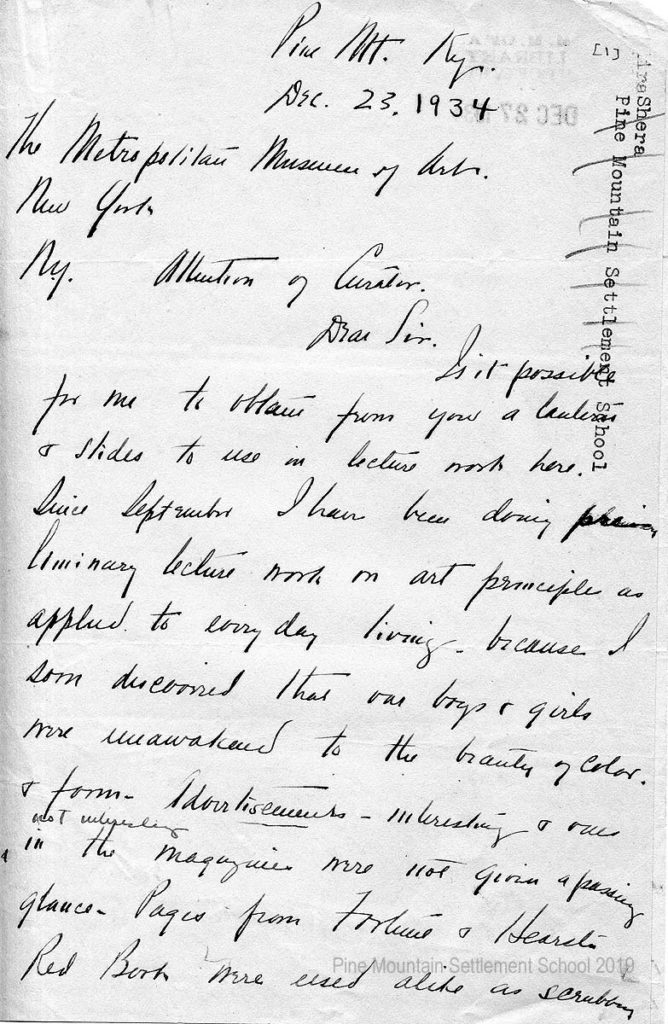 Pine Mt. Ky.
Dec. 23, 1934
[1]
Pine Mountain Settlement School
DEC 27
LIBRARY
The Metropolitan Museum of Art.
New York
Ny. Attention of Curator.
Dear Sir.
Is it possible
for me to obtain from you a lantern
& slides to use in lecture work here.
Since September I have been doing
liminary lecture work on art principles as
applied to every day living - because I
soon discovered that our boys & girls
were unawakened to the beauty of color.
& form - Advertisements - interesting & ones
not interesting
in the magazines were not given a passing
glance - Pages from Fortune & Hearsts
Red Book were used alike as scrubbing
Pine Mountain Settlement School 2019